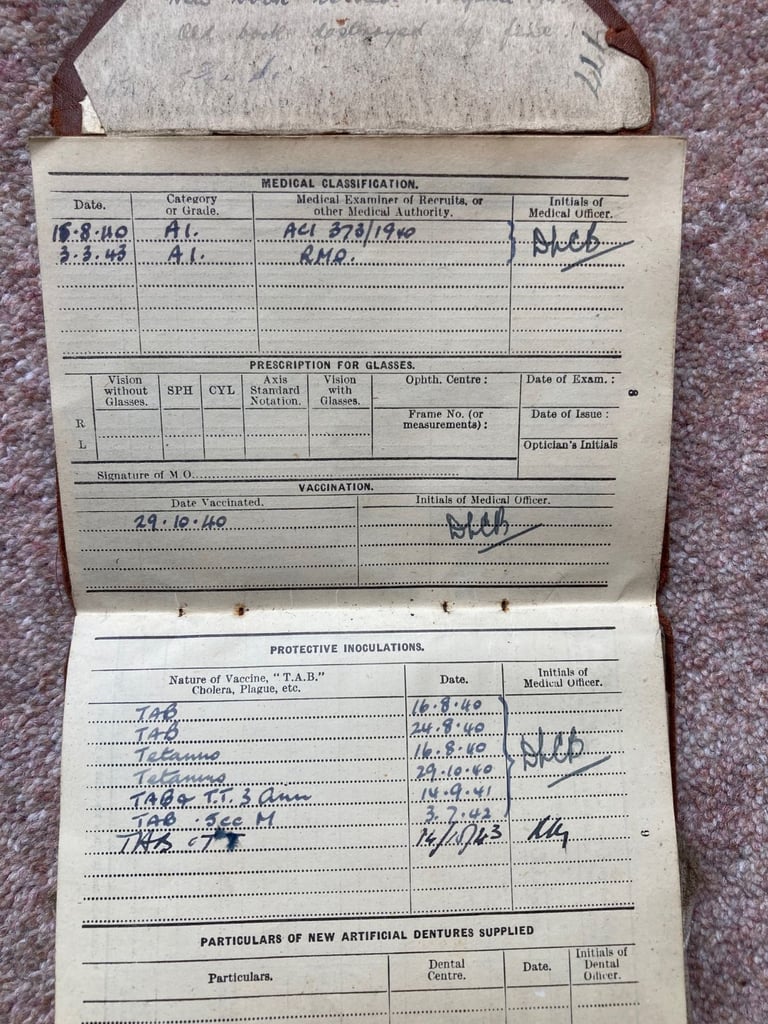 Old book destroyed by fire.
MEDICAL CLASSIFICATION.
Date. Category or Grade. Medical Examiner of Recruits, or other Medical Authority. Initials of Medical Officer.
15.8.40 A1. ACI 373/1940 DLCB
3.3.43 A1. RMO.
PRESCRIPTION FOR GLASSES.
Vision without Glasses. SPH CYL Axis Standard Notation. Vision with Glasses. Ophth. Centre : Date of Exam. :
8
R Frame No. (or measurements) : Date of Issue :
L Optician's Initials
Signature of M.O.
VACCINATION.
Date Vaccinated. Initials of Medical Officer.
29.10.40 DLCB
PROTECTIVE INOCULATIONS.
Nature of Vaccine, "T.A.B." Cholera, Plague, etc. Date. Initials of Medical Officer.
TAB 16.8.40
TAB 24.8.40
Tetanus 16.8.40 DLCB
Tetanus 29.10.40
TAB & T.T. 3 Ann 14.9.41
TAB .5cc M 3.7.42
TAB TT 14/10/43
9
PARTICULARS OF NEW ARTIFICIAL DENTURES SUPPLIED
Particulars. Dental Centre. Date. Initials of Dental Officer.